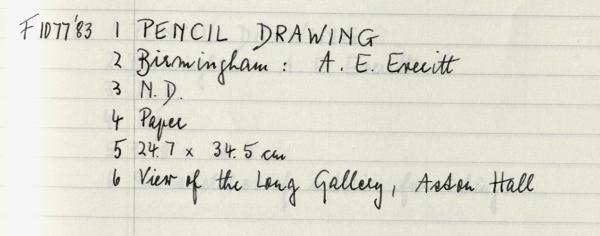 F1077'83 1 PENCIL DRAWING
2 Birmingham: A. E. Everitt
3 N.D.
4 Paper
5 24.7 x 34.5 cm
6 View of the Long Gallery, Aston Hall